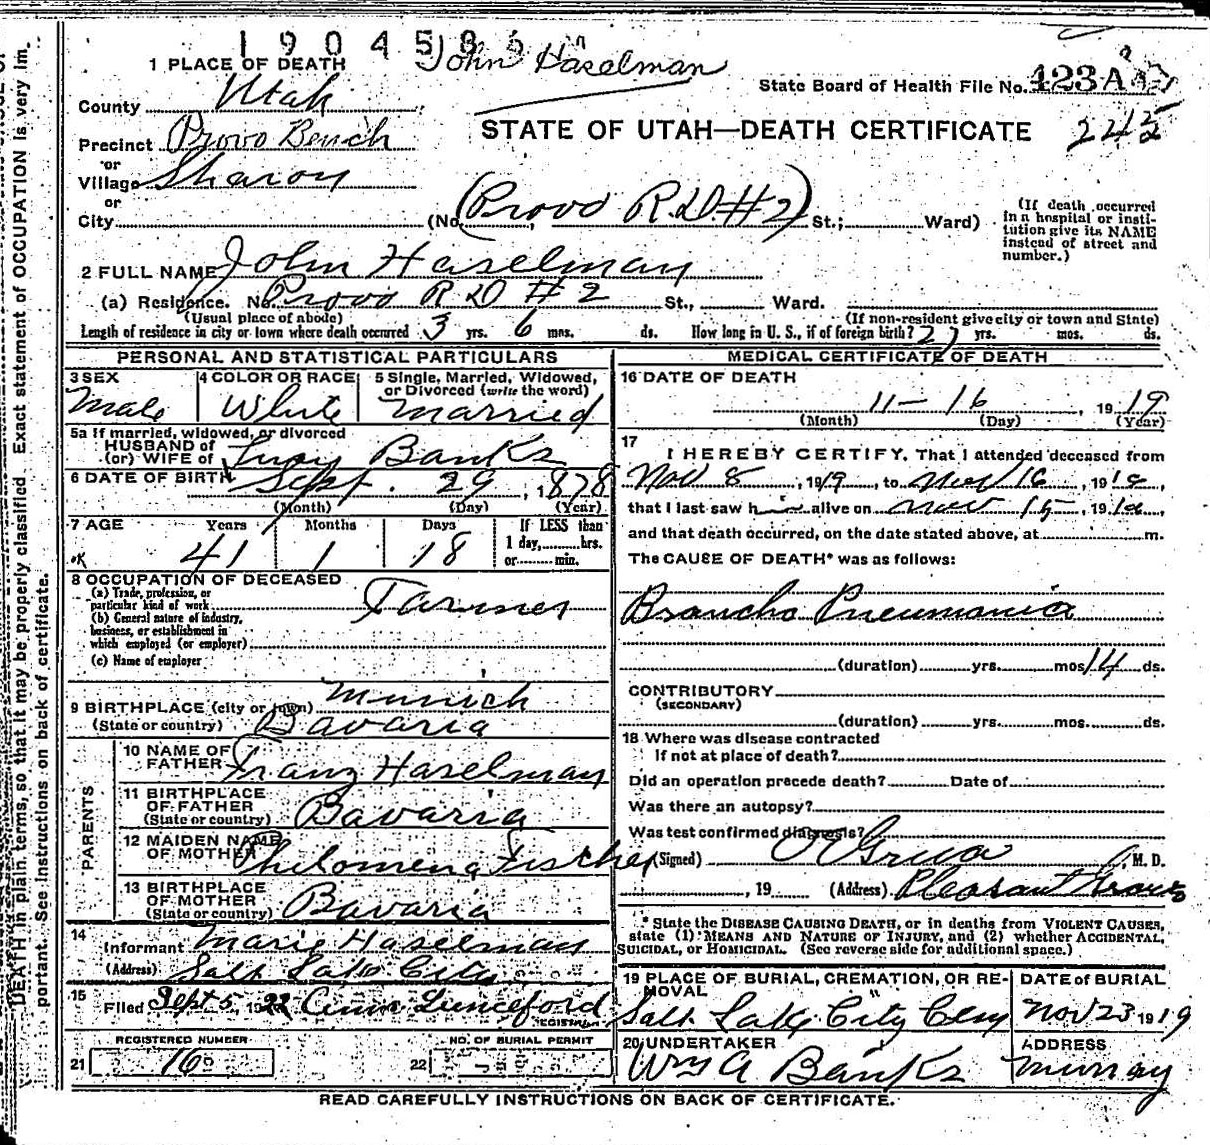 1904586
John Haselman
1 PLACE OF DEATH
State Board of Health File No. 423A
County Utah
STATE OF UTAH—DEATH CERTIFICATE
245
Precinct Provo Bench
or
Village Sharon
or
City (No. (Provo R.D #2) St.; Ward)
(If death occurred in a hospital or institution give its NAME instead of street and number.)
2 FULL NAME John Haselman
(a) Residence. No. Provo R D #2 St., Ward.
(Usual place of abode) (If non-resident give city or town and State)
Length of residence in city or town where death occurred 3 yrs. 6 mos. ds. How long in U. S., if of foreign birth? 27 yrs. mos. ds.
PERSONAL AND STATISTICAL PARTICULARS
3 SEX 4 COLOR OR RACE 5 Single, Married, Widowed, or Divorced (write the word)
Male White Married
5a If married, widowed, or divorced
HUSBAND of
(or) WIFE of Lucy Banks
6 DATE OF BIRTH Sept. 29, 1878
(Month) (Day) (Year)
7 AGE Years Months Days If LESS than
1 day, hrs.
or min.
41 1 18
8 OCCUPATION OF DECEASED
(a) Trade, profession, or
particular kind of work Farmer
(b) General nature of industry,
business, or establishment in
which employed (or employer)
(c) Name of employer
9 BIRTHPLACE (city or town) Munich
(State or country) Bavaria
PARENTS
10 NAME OF
FATHER Franz Haselman
11 BIRTHPLACE
OF FATHER
(State or country) Bavaria
12 MAIDEN NAME
OF MOTHER Philomena Fischer
13 BIRTHPLACE
OF MOTHER
(State or country) Bavaria
14
Informant Marie Haselman
(Address) Salt Lake City
15
Filed Sept 5, 1922 Lunceford
REGISTRAR
REGISTERED NUMBER
21 16
NO. OF BURIAL PERMIT
22
MEDICAL CERTIFICATE OF DEATH
16 DATE OF DEATH
11-16, 1919
(Month) (Day) (Year)
17
I HEREBY CERTIFY, That I attended deceased from
Nov 8, 1919, to Nov 16, 1919,
that I last saw him alive on Nov 15, 1919,
and that death occurred, on the date stated above, at m.
The CAUSE OF DEATH* was as follows:
Broncho Pneumonia
(duration) yrs. mos. 14 ds.
CONTRIBUTORY
(SECONDARY)
(duration) yrs. mos. ds.
18 Where was disease contracted
If not at place of death?
Did an operation precede death? Date of
Was there an autopsy?
Was test confirmed diagnosis?
(Signed) , M. D.
, 19 (Address) Pleasant Grove
* State the DISEASE CAUSING DEATH, or in deaths from VIOLENT CAUSES,
state (1) MEANS AND NATURE OF INJURY, and (2) whether ACCIDENTAL,
SUICIDAL, or HOMICIDAL. (See reverse side for additional space.)
19 PLACE OF BURIAL, CREMATION, OR REMOVAL
Salt Lake City Cem
DATE of BURIAL
Nov 23 1919
20 UNDERTAKER
Wm A Banks
ADDRESS
Murray
READ CAREFULLY INSTRUCTIONS ON BACK OF CERTIFICATE.
DEATH in plain terms, so that it may be properly classified. Exact statement of OCCUPATION is very im-
portant. See Instructions on back of certificate.